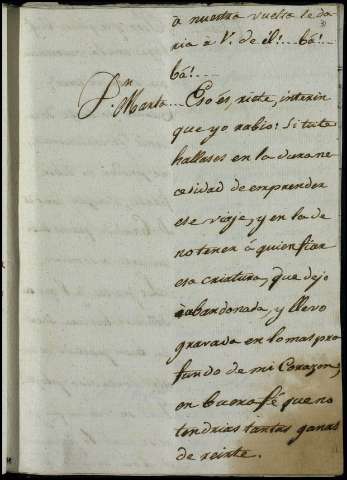 à nuestra vuelta le da
ria à V. de él!... bá!
bá!...
Dn
Marto... Eso és, riete, interin
que yo rabio: Si tu te
hallases en la dura ne
cesidad de emprender
ese viaje, y en la de
no tener à quien fiar
esa criatura, que dejo
abandonada, y llevo
gravada en lo mas pro
fundo de mi Corazon;
en buena fé que no
tendrias tantas ganas
de reirte.